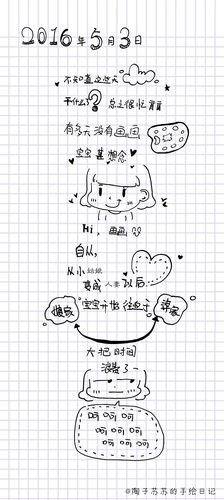 2016年5月3日
不知道这些天
干什么了? 总之很忙
有多天没有画画
宝宝甚想念
Hi, 画画
自从,
从小姑娘
变成人妻以后
宝宝开始往返于
婆家
大把时间
浪费了
呵呵 呵呵
呵呵 呵呵
呵呵 呵呵
@陶子苏苏的手绘日记